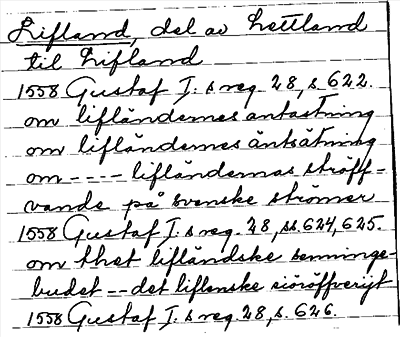 Lifland, del av Lettland
til Lifland
1558 Gustaf I:s reg. 28, s. 622.
om lifländernes antastning
om lifländernes äntsätning
om ---- lifländernas ströff-
vande på svenske strömer
1558 Gustaf I:s reg. 28, ss. 624, 625.
om thet lifländske senninge-
budet -- det liflenske siöröffverijt
1558 Gustaf I:s reg. 28, s. 626.